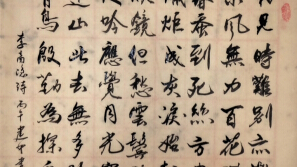 見時難別亦
風無力百花
蚕到死絲方
炬成灰淚始
鏡但愁雲鬢
吟應覺月光
山此去無多
鳥殷勤為探
李商隱詩丙午建中書